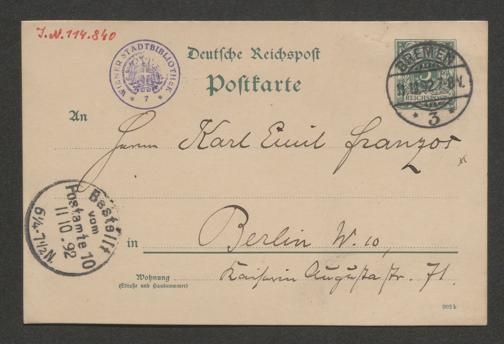 J.N. 114.840
WIENER STADTBIBLIOTHEK
* 7 *
Deutsche Reichspost
Postkarte
BREMEN
92
* 3 *
REICHSPOST
An
Herrn Karl Emil Franzos
Bestellt
vom
Postamte 10
11.10.92
6¼-7½N.
in Berlin W. 10,
Wohnung Kaiserin Augusta str. 71.
(Straße und Hausnummer)